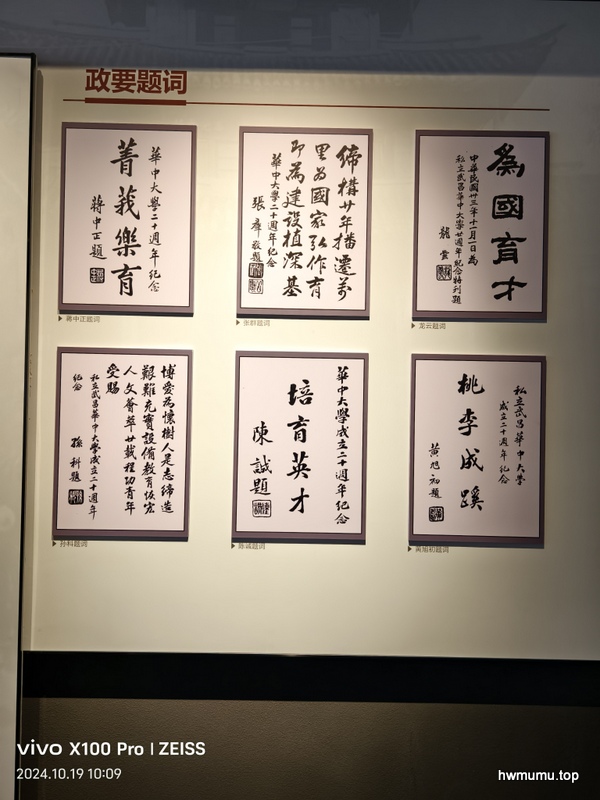 政要题词
華中大學二十週年紀念
菁莪樂育
蔣中正題
蒋中正题词
締構廿年播遷萬
里為國家弘作育
即為建設植深基
華中大學二十週年紀念
張羣敬題
张群题词
為國育才
中華民國卅三年十一月一日為
私立武昌華中大學廿週年紀念特刊題
龍雲
龙云题词
博愛為懷樹人是志締造
艱難充實設備教育恢宏
人文薈萃廿載程功青年
受賜
私立武昌華中大學成立二十週年
紀念
孫科題
孙科题词
華中大學成立二十週年紀念
培育英才
陳誠題
陈诚题词
私立武昌華中大學
成立二十週年紀念
桃李成蹊
黃旭初題
黄旭初题词
vivo X100 Pro | ZEISS
2024.10.19 10:09
hwmumu.top